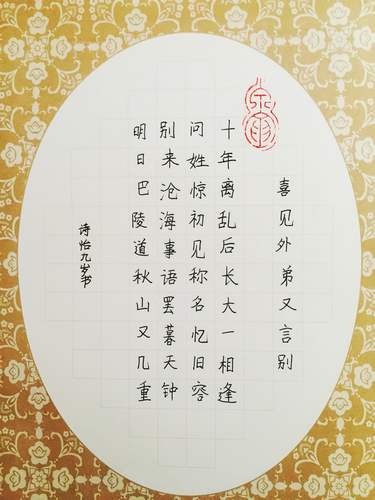 喜见外弟又言别
十年离乱后长大一相逢
问姓惊初见称名忆旧容
别来沧海事语罢暮天钟
明日巴陵道秋山又几重
诗怡九岁书